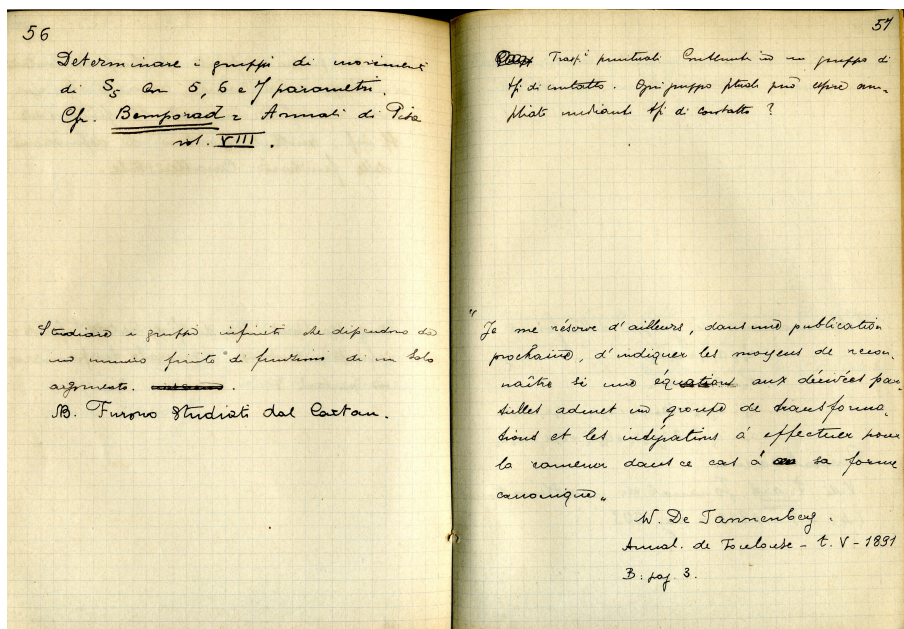 56
Determinare i gruppi di movimenti
di S5 con 5, 6 e 7 parametri.
Cfr. Bemporad = Annali di Pisa
vol. VIII.
Studiare i gruppi infiniti che dipendono da
un numero finito di funzioni di un solo
argomento.
NB. Furono studiati dal Cartan.
57
Trasfi puntuali Contenute in un gruppo di
tfi di contatto. Ogni gruppo ptuale può essere am-
pliato mediante tfi di contatto ?
"Je me réserve d'ailleurs, dans une publication
prochaine, d'indiquer les moyens de recon-
naître si une équations aux dérivées par-
tielles admet un groupe de transforma-
tions et les intégrations à effectuer pour
la ramener dans ce cas à sa forme
canonique"
W. De Tannenberg.
Annal. de Toulouse - t. V - 1891
B: pag 3.